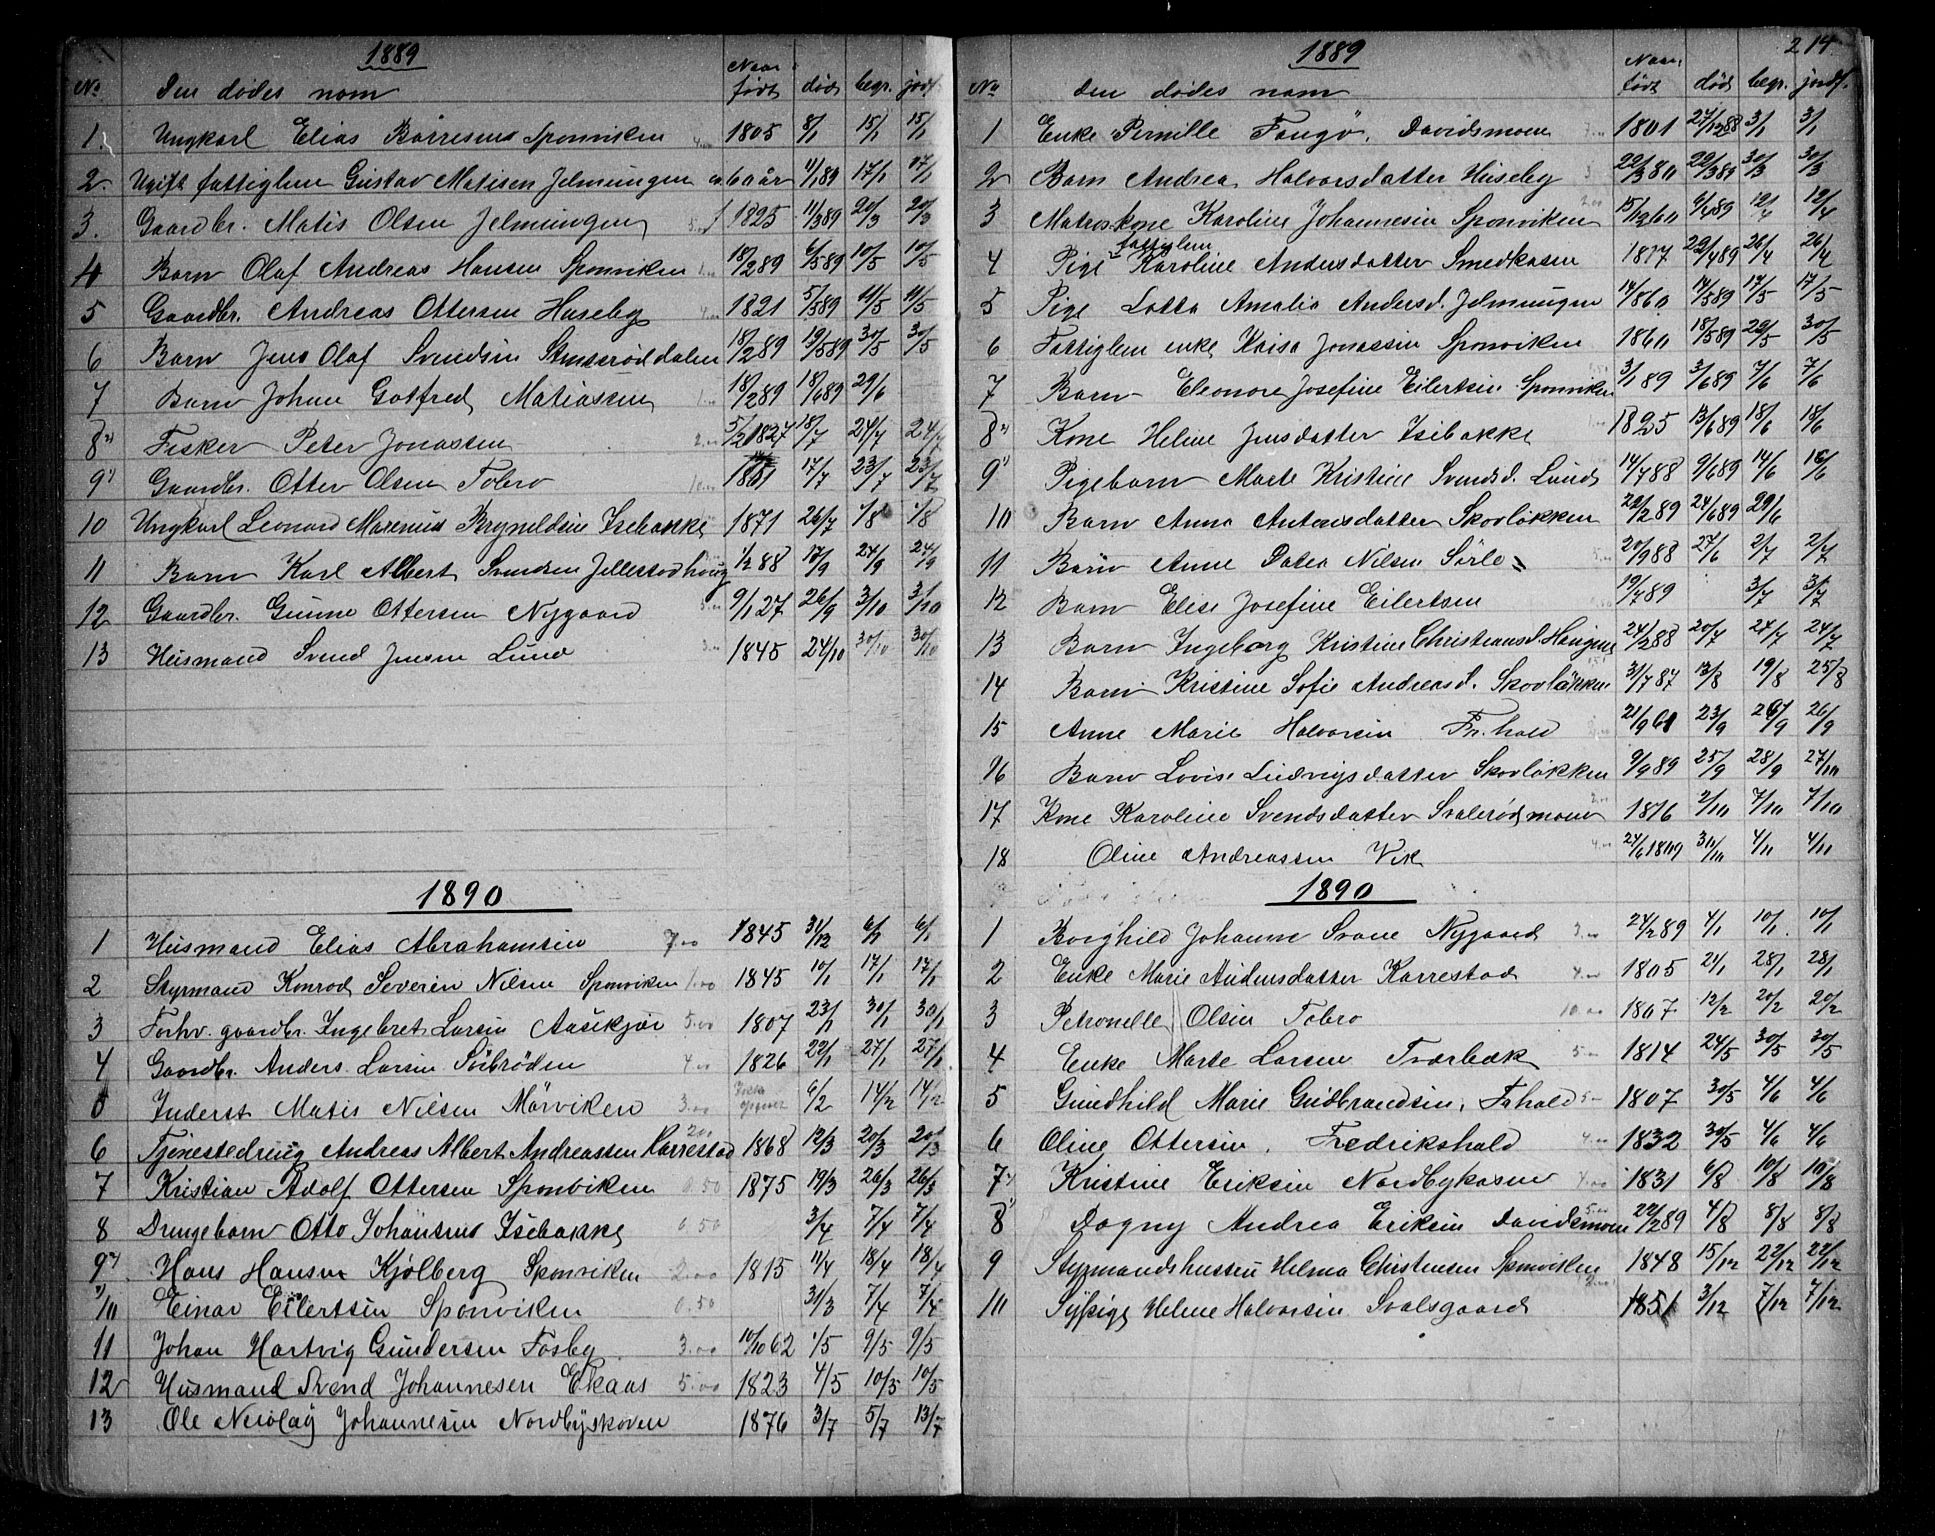 1889
No Den dødes navn Naar født død begr. jordf.
1. Ungkarl Elias Børresens Sponviken 4.00 1805 8/1 15/1 15/1
2. Ugift fattiglem Gustav Matisen Jelmungen 60 år 11/1 89 17/1 17/1
3. Gaardbr. Matis Olsen Jelmungen 1825 11/3 89 20/3 20/3
4 Barn Olaf Andreas Hansen Sponviken 18/2 89 6/5 89 10/5 10/5
5 Gaardbr. Andreas Ottersen Huseby 1821 5/5 89 11/5 11/5
6 Barn Jens Olaf Svendsen 18/2 89 19/5 89 30/5 30/5
7 Barn Johan Gotfred Matiassen 18/2 89 18/6 89 29/6
8 Fisker Peter Jonassen 2.00 5/2 1827 18/7 24/7 24/7
9 Gaardbr. Otter Olsen Tobro 17/7 23/7 23/7
10 Ungkarl Leonard Marenius Brynildsen Isebakke 1871 26/7 1/8 1/8
11 Barn Karl Albert Svendsen Jellestadhoug 1/2 88 17/9 24/9 24/9
12 Gaardbr. Gunne Ottersen Nygaard 9/1 27 26/9 3/10 3/10
13 Husmand Svend Jensen Lund 3.00 1845 24/10 30/10 30/10
1890
1 Husmand Elias Abrahamsen 7.00 1845 31/12 6/1 6/1
2 Styrmand Konrad Severin Nilsen Sponviken 1.00 1845 10/1 17/1 17/1
3 Forhv. gaardbr. Ingebret Larsen Aasekjær 5.00 1807 23/1 30/1 30/1
4 Gaardbr. Anders Larsen Sørbrøden 4.00 1826 22/1 27/1 27/1
5 Inderst Matis Nilsen Mørviken 3.00 Ikke opgivet 6/2 14/2 14/2
6 Tjenestedreng Andreas Albert Andreassen Karrestad 2.00 1868 12/3 20/3 20/3
7 Kristian Adolf Ottersen Sponviken 0.50 1875 19/3 26/3 26/3
8 Drengebarn Otto Johansens Isebakke 0.50 3/4 7/4 7/4
9 Hans Hansen Kjølberg Sponviken 2.00 1815 11/4 18/4 18/4
10 Einar Eilertsen Sponviken 0.50 31/3 7/4 7/4
11 Johan Hartvig Gundersen Fosby 3.00 10/10 62 1/5 9/5 9/5
12 Husmand Svend Johannesen Ekaas 5.00 1823 4/5 10/5 10/5
13 Ole Nicolay Johannesen Nordbyskoven 1876 3/7 5/7 13/7
214
1889
No den dødes navn Naar født død begr. jordf.
1 Enke Pernille Fangø, Davidsmoen 1801 27/12 88 3/1 3/1
2 Barn Andrea Halvorsdatter Huseby 22/3 80 22/3 89 30/3 30/3
3 Matroskone Karoline Johannesen Sponviken 2.00 15/12 60 6/4 89 12/4 12/4
4 Pige fattiglem Karoline Andersdatter Smedkasen 1817 22/4 89 26/4 26/4
5 Pige Lotta Amalia Andersd. Jelmungen 14/8 60 14/5 89 17/5 17/5
6 Fattiglem enke Kaisa Jonassen Sponviken 18/5 89 29/5 30/5
7 Barn Eleonora Josefine Eilertsen Sponviken 3/1 89 3/6 89 7/6 7/6
8 Kone Heline Jensdatter Isebakke 1825 13/6 89 18/6 18/6
9 Pigebarn Marte Kristine Svendsd. Lunds 14/7 88 9/6 89 14/6 16/6
10 Barn Anna Antonsdatter Skovløkken 22/2 89 24/6 89 29/6
11 Barn Anne Datea Nilsen Sørle 20/9 88 27/6 2/7 2/7
12 Barn Elise Josefine Eilertsen 19/7 89 3/7 3/7
13 Barn Ingeborg Kristine Christiansd. Haugene 24/2 88 20/7 24/7 24/7
14 Barn Kristine Sofie Andreasd. Skovløkken 31/7 87 13/8 19/8 25/8
15 Anne Marie Halvorsen Fr.hald 21/9 61 23/9 26/9 26/9
16 Barn Lovise Ludvigsdatter Skovløkken 9/9 89 25/9 28/9 27/10
17 Kone Karoline Svendsdatter Svalerødmoen 2.00 1816 2/10 7/10 7/10
18 Oline Andreassen Vik 4.00 24/6 1809 30/10 4/11 4/11
1890
1 Borghild Johanne Svane Nygaard 3.00 24/2 89 4/1 10/1 10/1
2 Enke Marie Andersdatter Karrestad 4.00 1805 21/1 28/1 28/1
3 Petronelle Olsen Tobro 10.00 12/2 20/2 20/2
4 Enke Marte Larsen Tværbæk 5 1814 24/5 30/5 30/5
5 Gundhild Marie Gudbrandsen, Frhald 5 1807 30/5 4/6 4/6
6 Oline Ottersen, Fredrikshald 4.00 1832 30/5 4/6 4/6
7 Kristine Eriksen Nordbykasen 4.00 1831 6/8 10/8 10/8
8 Dagny Andrea Eriksen Davidsmoen 5.00 22/2 89 4/8 8/8 8/8
9 Styrmandshustru Helma Christensen Sponviken 1848 15/12 22/12 22/12
10 Sypige Helene Halvorsen Svalsgaard 2.00 1851 3/12 7/12 7/12